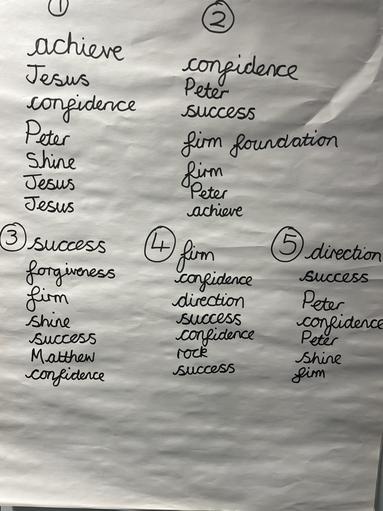 1
achieve
Jesus
confidence
Peter
Shine
Jesus
Jesus
2
confidence
Peter
success
firm foundation
firm
Peter
achieve
3 success
forgiveness
firm
shine
success
Matthew
confidence
4 firm
confidence
direction
success
confidence
rock
success
5 direction
success
Peter
confidence
Peter
shine
firm